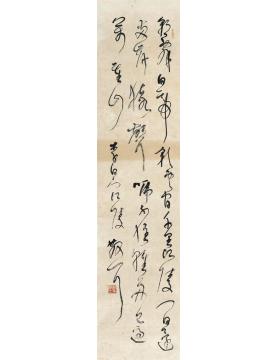 朝辭白帝彩雲間千里江陵一日還
兩岸猿聲啼不住輕舟已過
萬重山 李白下江陵 散耳